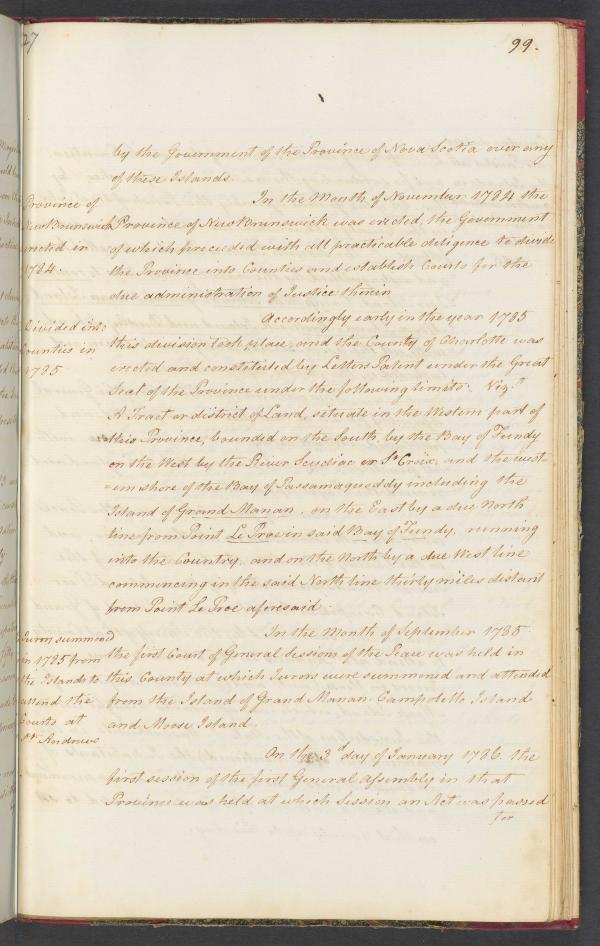 27
99.
by the Government of the Province of Nova Scotia over any
of these Islands.
Province of
New Brunswick
erected in
1784.
In the Month of November 1784 the
Province of New Brunswick was erected, the Government
of which proceeded with all practicable deligence to divide
the Province into Counties and establish Courts for the
due administration of Justice therein
Divided into
Counties in
1785
Accordingly early in the year 1785
this division took place, and the County of Charlotte was
erected and constituted by Letters Patent under the Great
Seal of the Province under the following limits. Viz.t
A Tract or district of Land, situate in the Western part of
this Province, bounded on the South, by the Bay of Fundy
on the West by the River Scudiac or St Croix, and the west-
=ern shore of the Bay of Passamaquoddy including the
Island of Grand Manan, on the East by a due North
line from Point Le Proe in said Bay of Fundy, running
into the Country, and on the North by a due West line
commencing in the said North line thirty miles distant
from Point Le Proe aforesaid
Jurors summond
in 1785 from
the Islands to
attend the
Courts at
St. Andrews
In the Month of September 1785
the first Court of General Sessions of the Peace was held in
this County at which Jurors were summoned and attended
from the Island of Grand Manan Campobello Island
and Moose Island.
On the 3d day of January 1786. the
first session of the first General Assembly in that
Province was held at which Session an Act was passed
for